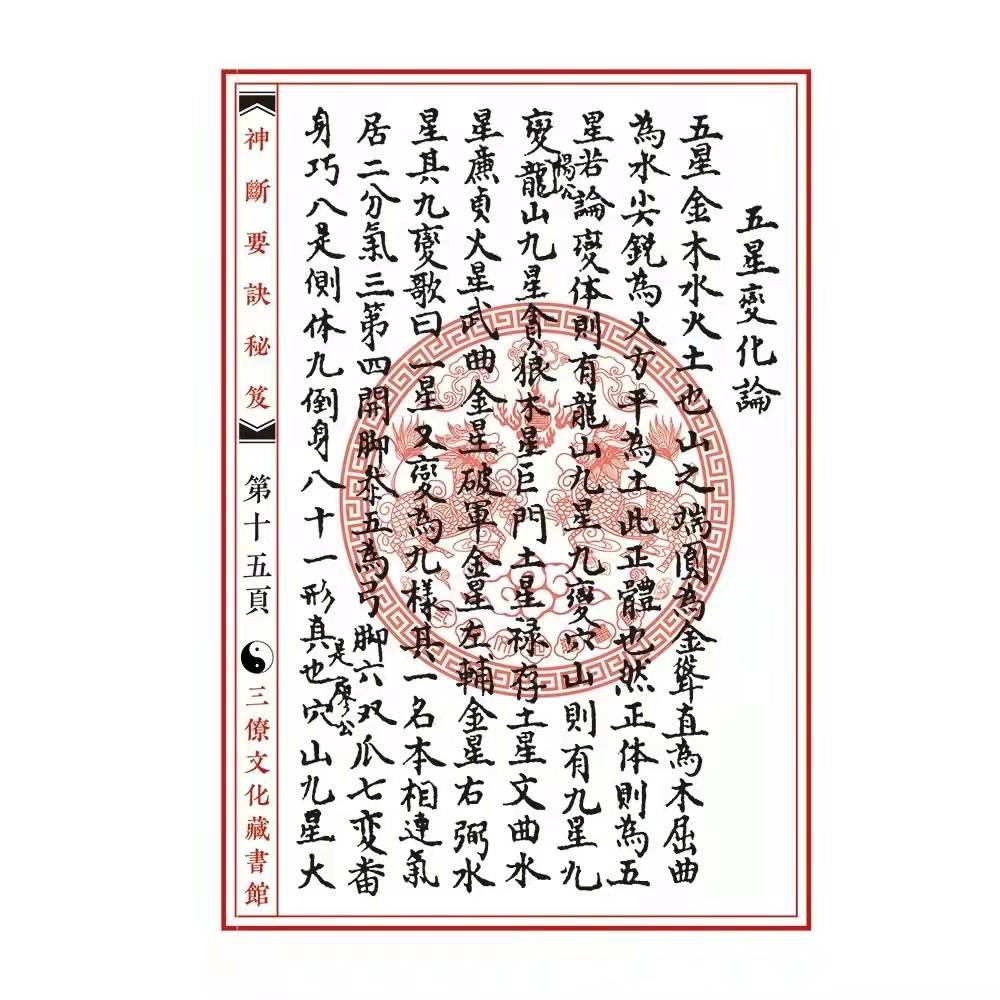 五星變化論
五星金木水火土也山之端圓為金聳直為木屈曲
為水尖銳為火方平為土此正體也然正体則為五
星若論變体則有龍山九星九變穴山則有九星九
變龍山九星貪狼木星巨門土星禄存土星文曲水
楊公
星廉貞火星武曲金星破軍金星左輔金星右弼水
星其九變歌曰一星又變為九樣其一名本相連氣
居二分氣三第四開脚叅五為弓脚六双爪七变畨
身巧八是側体九倒身八十一形真也穴山九星大
是廖公
《神斷要訣秘笈》
第十五頁
三僚文化藏書館